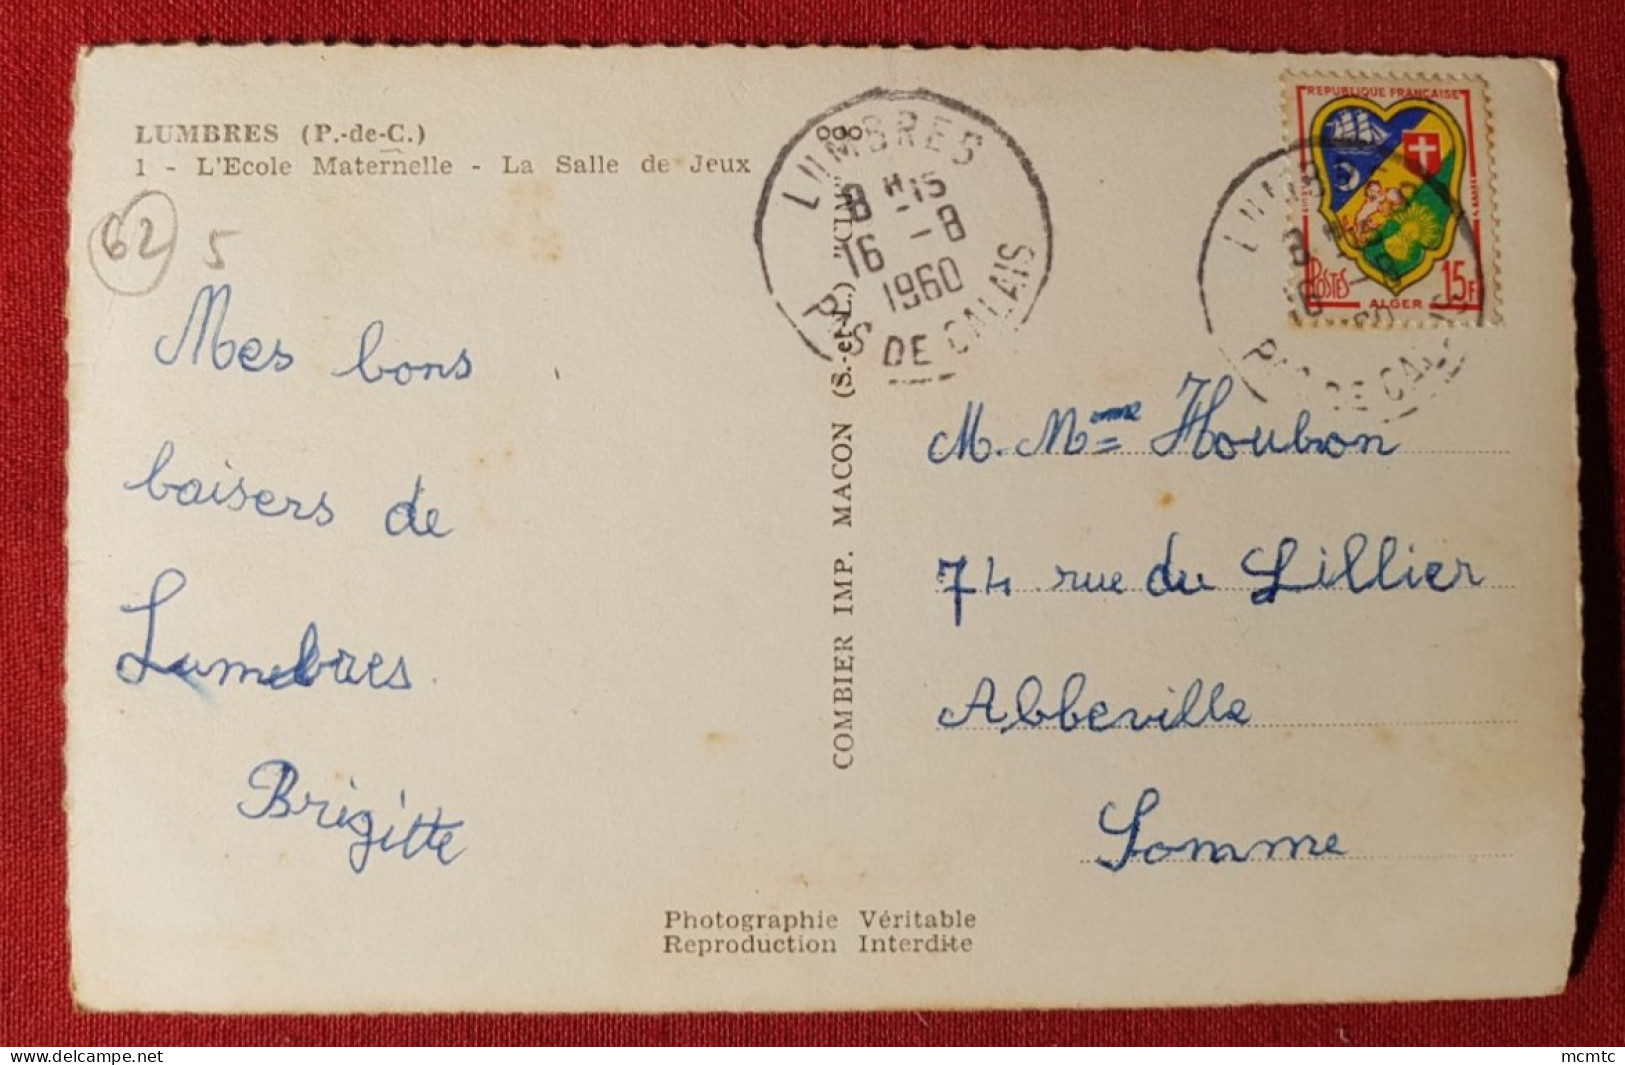 LUMBRES (P.-de-C.)
1 - L'Ecole Maternelle - La Salle de Jeux
62
5
Mes bons
baisers de
Lumbres
Brigitte
COMBIER IMP. MACON (S.-et-L.) "CIM"
LUMBRES
8 H 15
16 - 8
1960
PAS DE CALAIS
REPUBLIQUE FRANÇAISE
POSTES
15F
ALGER
LUMBRES
PAS DE CALAIS
M. Mme Houbron
74 rue du Lillier
Abbeville
Somme
Photographie Véritable
Reproduction Interdite
www.delcampe.net
mcmtc